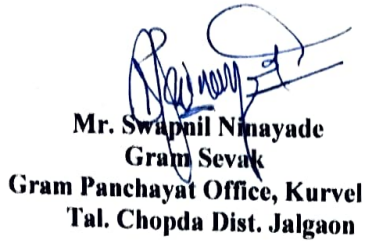 Mr. Swapnil Ninayade
Gram Sevak
Gram Panchayat Office, Kurvel
Tal. Chopda Dist. Jalgaon